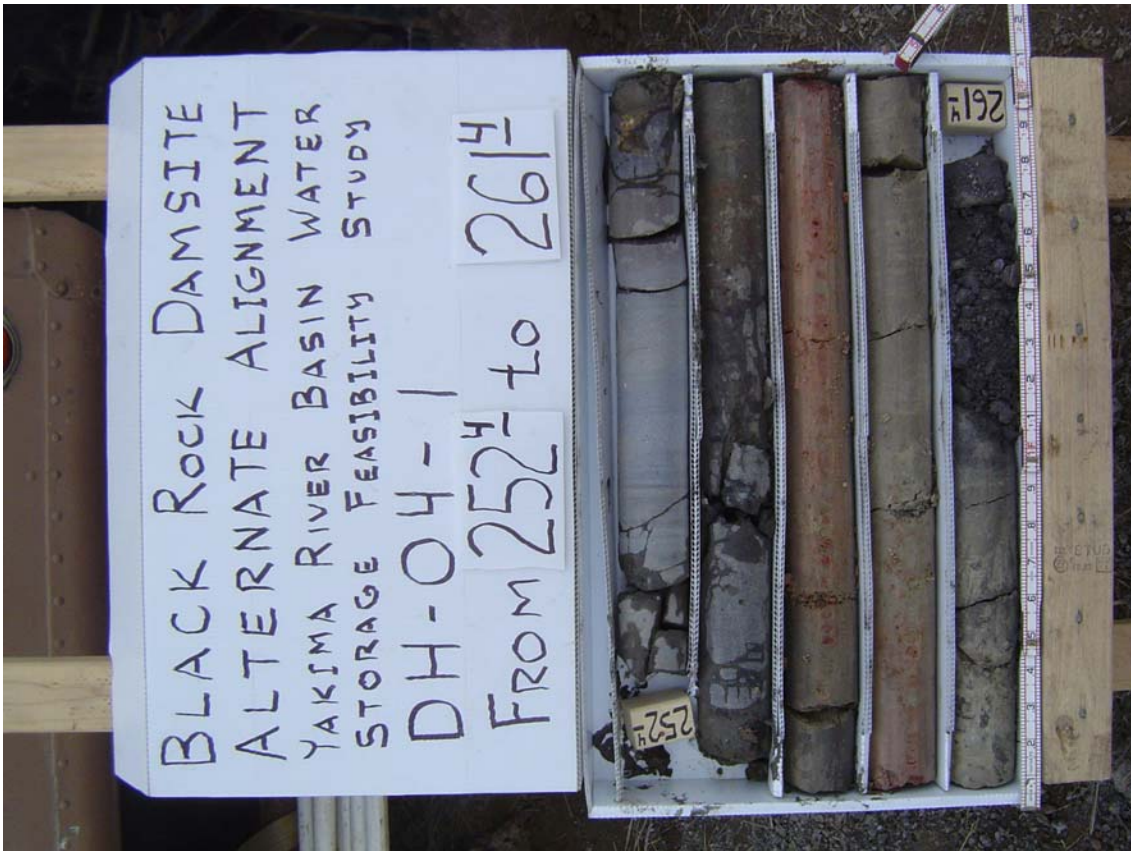 BLACK ROCK DAMSITE
ALTERNATE ALIGNMENT
YAKIMA RIVER BASIN WATER
STORAGE FEASIBILITY STUDY
DH-04-1
FROM 252⁴ to 261⁴
252⁴
261⁴
STUD